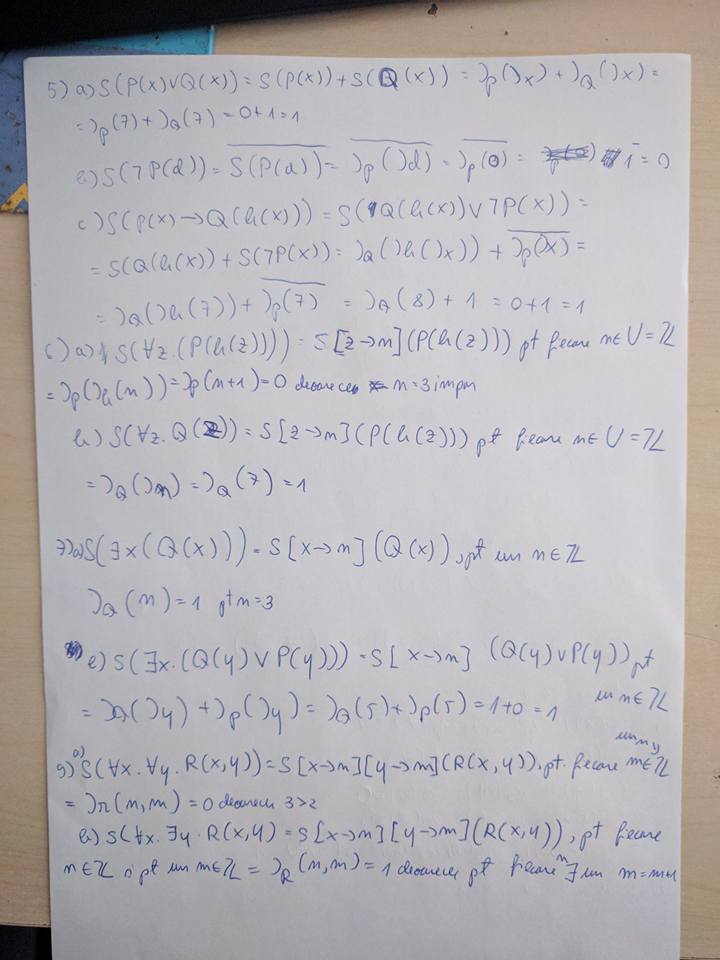 5) a) S(P(x)∨Q(x)) = S(P(x)) + S(Q(x)) = )p()x) + )Q()x) =
= )p(7) + )Q(7) = 0+1 = 1
b) S(¬P(d)) = S(P(d)) = )p()d) = )p(0) = 1̄ = 0
c) S(P(x) → Q(h(x))) = S(Q(h(x)) ∨ ¬P(x)) =
= S(Q(h(x)) + S(¬P(x)) = )Q()h()x)) + )p()x) =
= )Q()h(7)) + )p(7) = )Q(8) + 1 = 0+1 = 1
6) a) S(∀z.(P(h(z)))) = S[z→n](P(h(z))) pt fiecare n∈U = ℤ
= )p()h(n)) = )p(n+1) = 0 deoarece n = 3 impar
b) S(∀z.Q(z)) = S[z→n](P(h(z))) pt fiecare n∈U = ℤ
= )Q()n) = )Q(7) = 1
7) a) S(∃x(Q(x))) = S[x→n](Q(x)), pt un n∈ℤ
)Q(n) = 1 pt n = 3
e) S(∃x.(Q(y)∨P(y))) = S[x→n] (Q(y)∨P(y)) pt
un n∈ℤ
= )Q()y) + )p()y) = )Q(5) + )p(5) = 1+0 = 1
9) a) S(∀x.∀y.R(x,y)) = S[x→n][y→m](R(x,y)), pt fiecare m∈ℤ
= )R(n,m) = 0 deoarece 3>2
b) S(∀x.∃y.R(x,y) = S[x→n][y→m](R(x,y)), pt fiecare
n∈ℤ și pt un m∈ℤ = )R(n,m) = 1 deoarece pt fiecare n ∃ un m = n+1